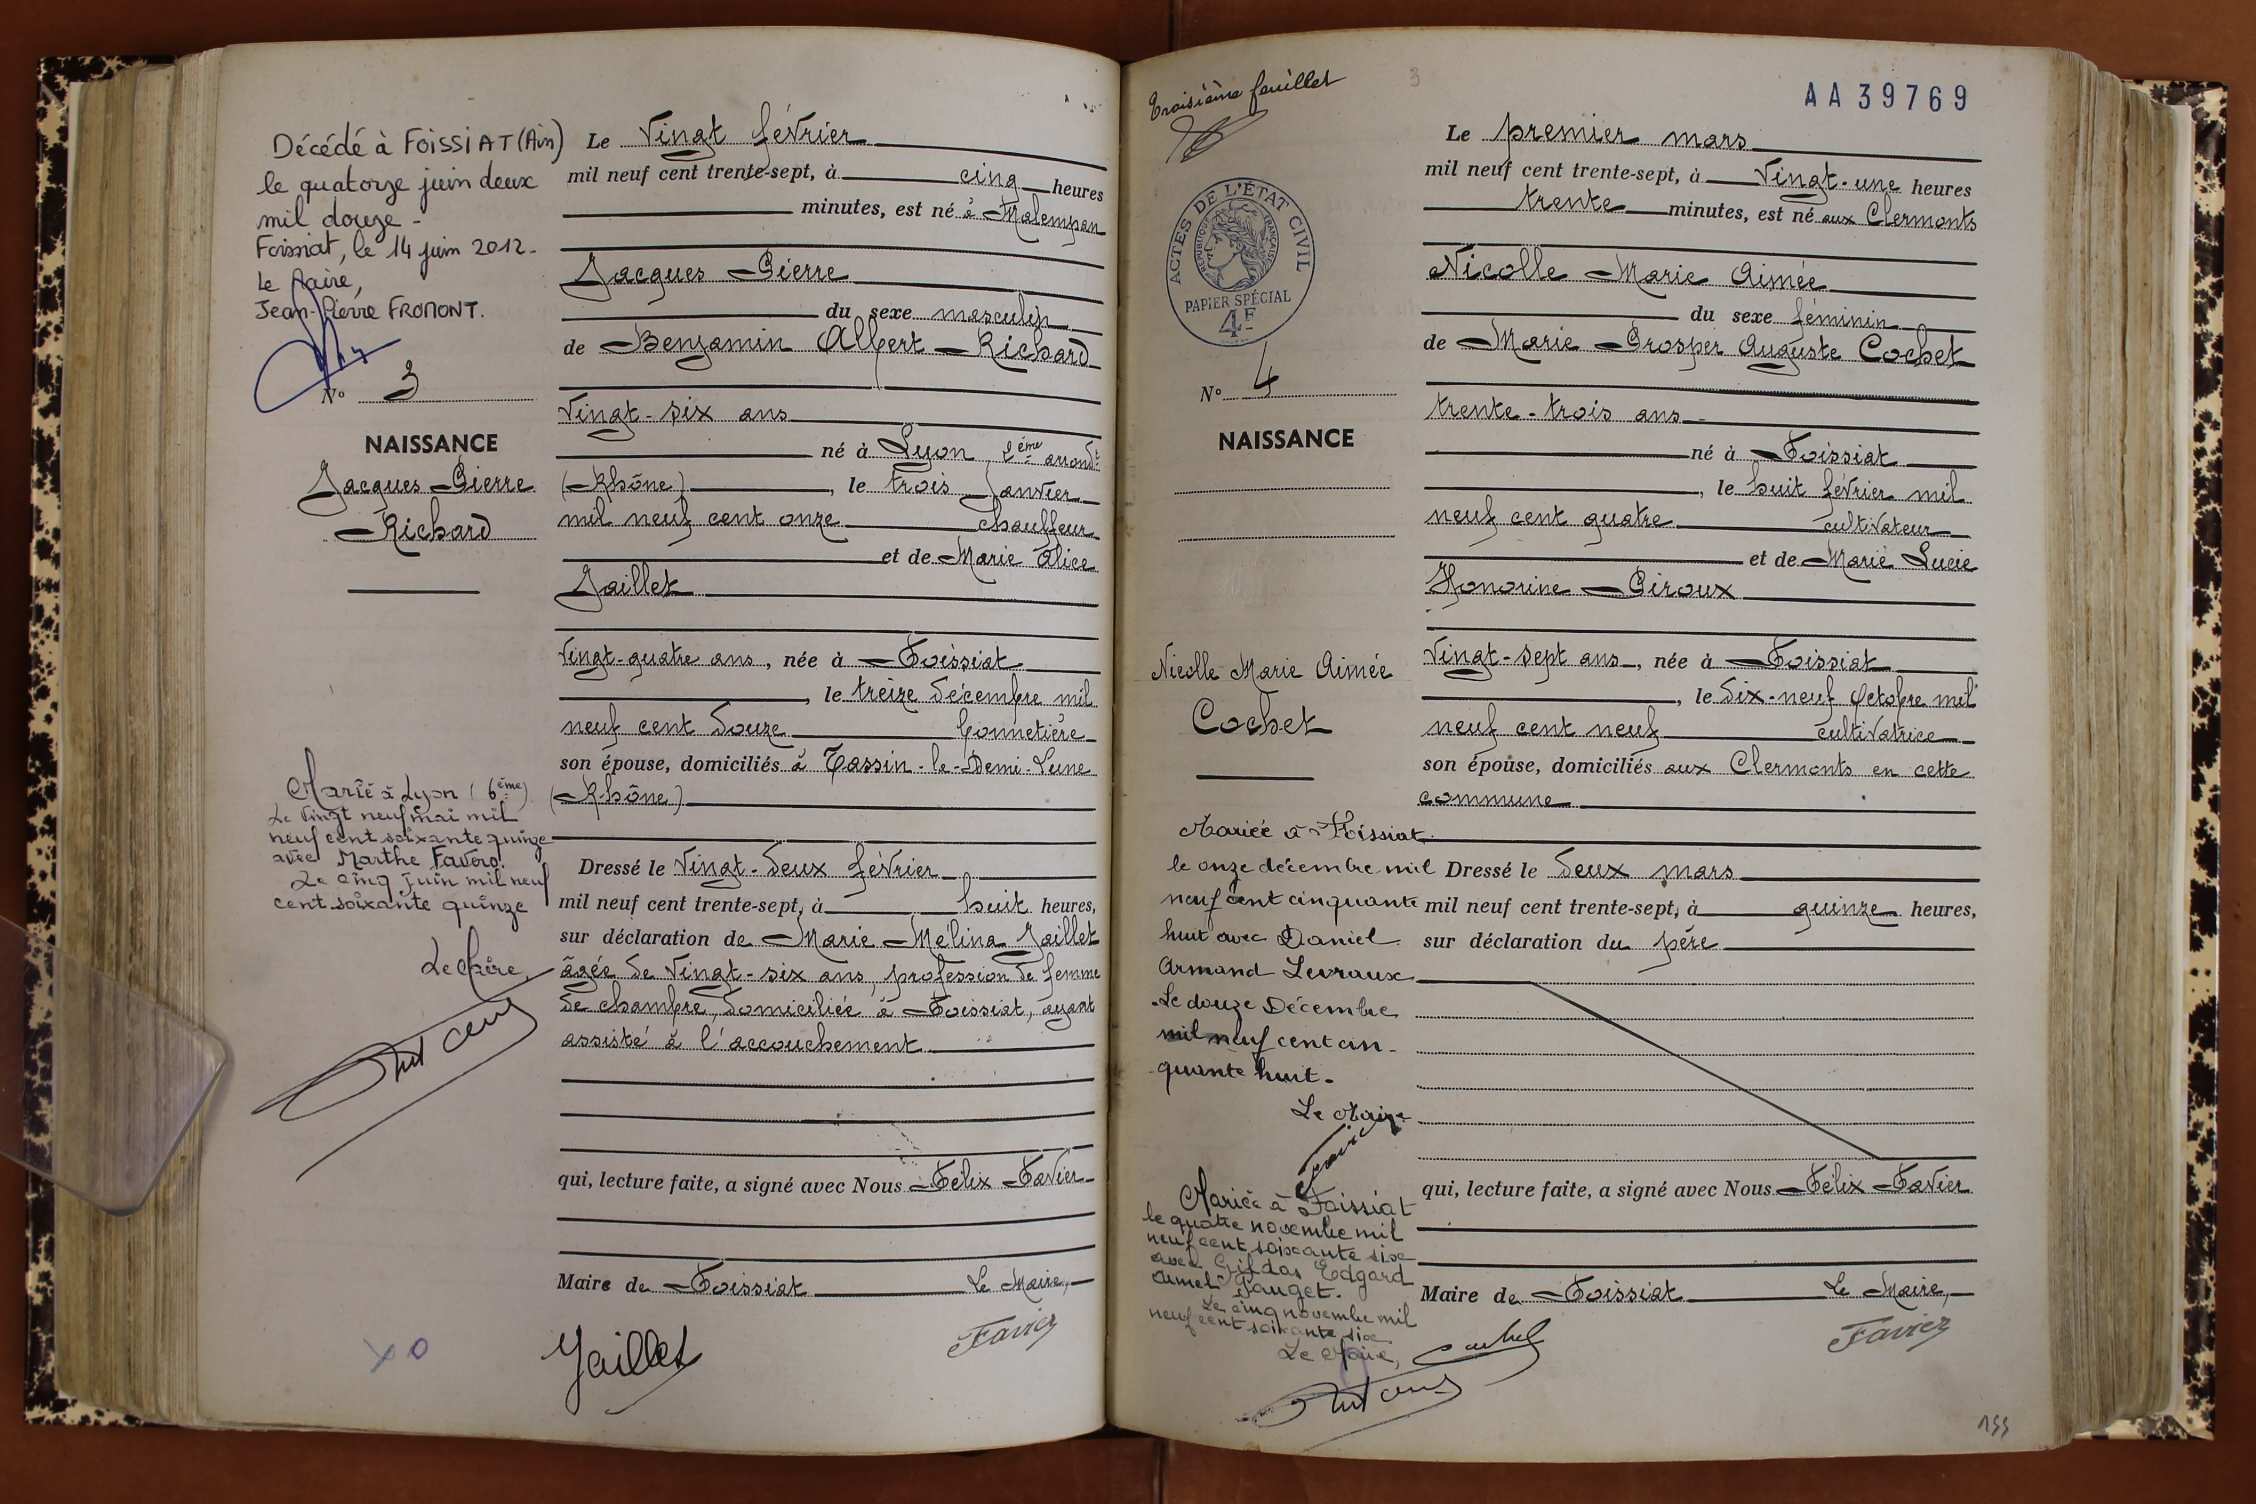 Décédé à FOISSIAT (Ain)
le quatorze juin deux
mil douze -
Foissiat, le 14 juin 2012 -
Le Maire,
Jean-Pierre FROMONT.
N° 3
NAISSANCE
Jacques Pierre
Richard
Marié à Lyon (6ème)
Le Vingt neuf mai mil
neuf cent soixante quinze
avec Marthe Favero.
Le cinq juin mil neuf
cent soixante quinze
Le Maire,
Le Vingt février
mil neuf cent trente-sept, à cinq heures
minutes, est né à Malempan
Jacques Pierre
du sexe masculin
de Benjamin Albert Richard
Vingt-six ans
né à Lyon 2ème arrondt
(Rhône), le trois Janvier
mil neuf cent onze chauffeur
et de Marie Alice
Jaillet
Vingt-quatre ans, née à Foissiat
, le treize décembre mil
neuf cent douze bonnetière
son épouse, domiciliés à Tassin-la-Demi-Lune
(Rhône)
Dressé le Vingt-deux février
mil neuf cent trente-sept, à huit heures,
sur déclaration de Marie Mélina Jaillet
âgée de Vingt-six ans, profession de femme
de chambre, domiciliée à Foissiat, ayant
assisté à l'accouchement
qui, lecture faite, a signé avec Nous Félix Favier
Maire de Foissiat Le Maire,
Jaillet Favier
XO
Troisième feuillet
3
AA39769
ACTES DE L'ÉTAT CIVIL
RÉPUBLIQUE FRANÇAISE
PAPIER SPÉCIAL
4F
N° 4
NAISSANCE
Nicolle Marie Aimée
Cochet
Mariée à Foissiat
le onze décembre mil
neuf cent cinquante
huit avec Daniel
Armand Levraux
Le douze Décembre
mil neuf cent cin-
quante huit.
Le Maire
Favier
Mariée à Foissiat
le quatre novembre mil
neuf cent soixante six
avec Gildas Edgard
Armel Pauget.
Le cinq novembre mil
neuf cent soixante six
Le Maire,
Le premier mars
mil neuf cent trente-sept, à Vingt-une heures
trente minutes, est né aux Clermonts
Nicolle Marie Aimée
du sexe féminin
de Marie Prosper Auguste Cochet
trente-trois ans
né à Foissiat
, le huit février mil
neuf cent quatre cultivateur
et de Marie Lucie
Honorine Piroux
Vingt-sept ans, née à Foissiat
, le dix-neuf Octobre mil
neuf cent neuf cultivatrice
son épouse, domiciliés aux Clermonts en cette
commune
Dressé le deux mars
mil neuf cent trente-sept, à quinze heures,
sur déclaration du père
qui, lecture faite, a signé avec Nous Félix Favier
Maire de Foissiat Le Maire,
Cochet Favier
155